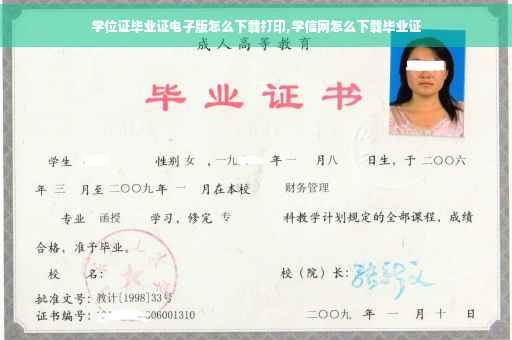 学位证毕业证电子版怎么下载打印,学信网怎么下载毕业证
成人高等教育
毕业证书
学生 性别 女 ,一九 年一 月八 日生,于二〇〇六
年 三 月至二〇〇九年 一 月在本校 财务管理
专业 函授 学习,修完 专 科教学计划规定的全部课程,成绩
合格,准予毕业。
校 名: 校(院)长:
批准文号:教计[1998]33号
证书编号: 006001310 二〇〇九 年 一 月 十 日